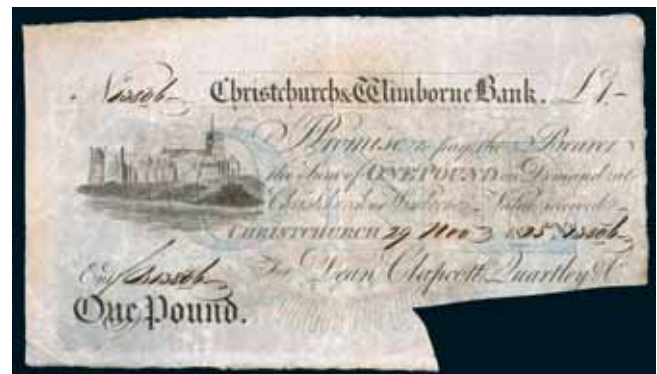 Christchurch & Wimborne Bank. £1,-
I Promise to pay the Bearer
the Sum of ONE POUND on Demand at
Christchurch or Wimborne Value received
CHRISTCHURCH 29 Nov 1825
For Dean Clapcott Quartley & Co
One Pound.